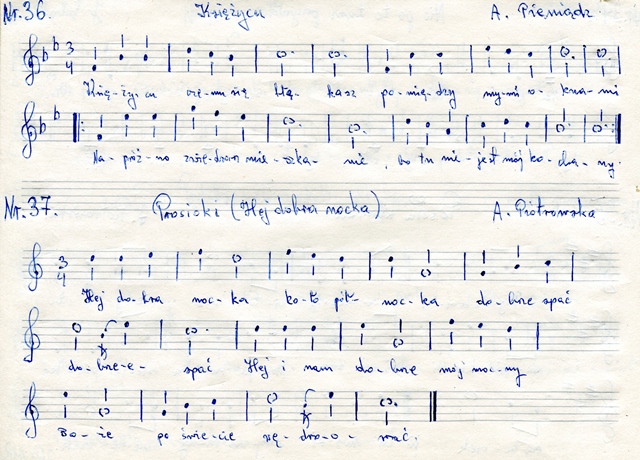 Nr. 36. Księżycu A. Pieniądz
3
4
Księ-ży-cu cze-mu się błą-kasz po-mię-dzy my-mi o-kna-mi
Na-próż-no zaglądam mie-szka-nie, bo tu nie-jest mój ko-cha-ny.
Nr. 37. Prosiaki (Hej dobra nocka) A. Piotrowska
3
4
Hej do-bra noc-ka ko-ło pół-noc-ka do-brze spać
do-brze-e- spać Hej i nam do-brze mój moc-ny
Bo-że po świe-cie wę-dro-o-wać.